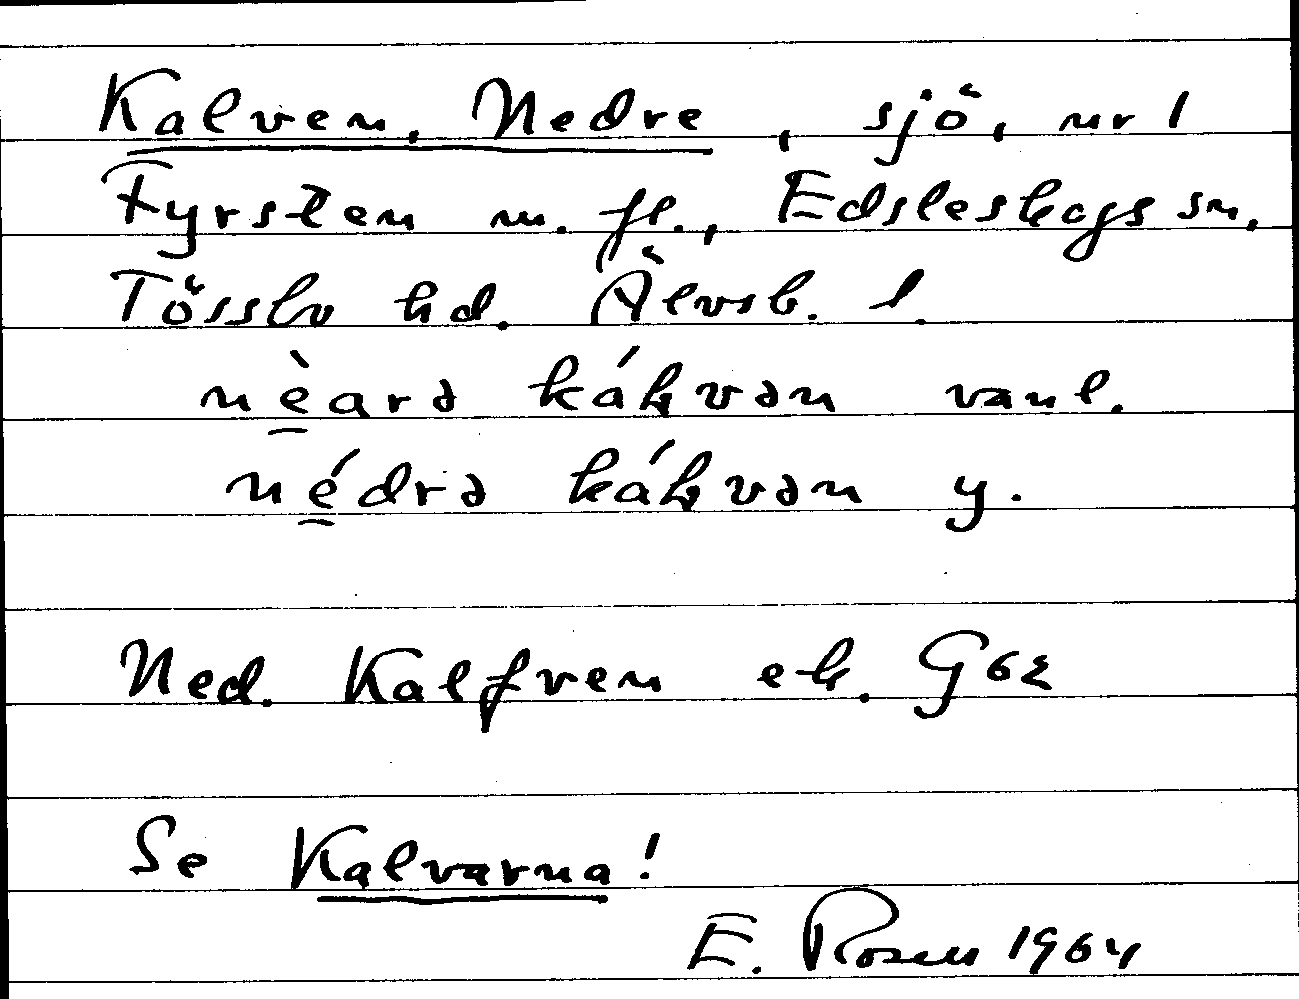 Kalven, Nedre, sjö, nr 1
Fyrsten m. fl., Edsleskogs sn,
Tössbo hd. Älvsb. l.
nèarə káɫvən vanl.
nédrə káɫvən y.
Ned. Kalfven ek. G62
Se Kalvarna!
E. Rosen 1964